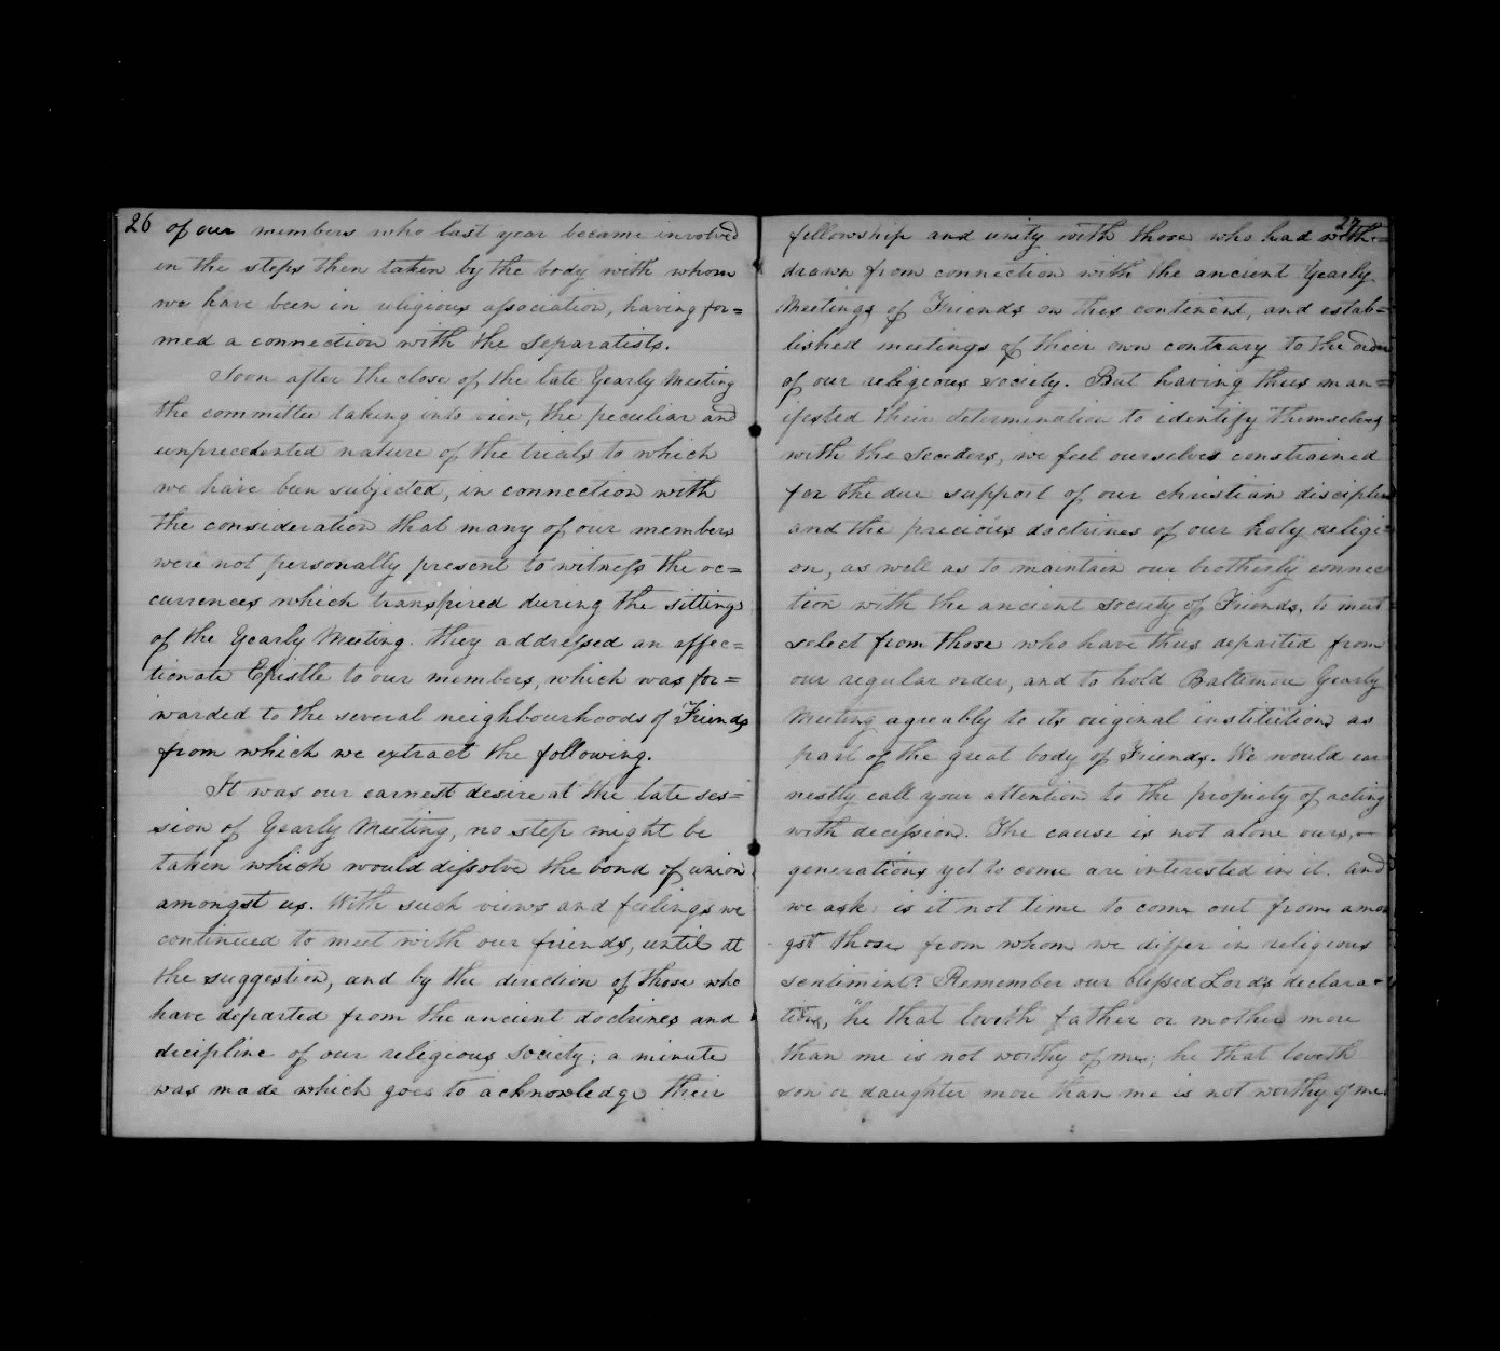 26 of our members who last year became involved
in the steps then taken by the body with whom
we have been in religious association, having for=
med a connection with the Separatists.
Soon after the close of the late Yearly Meeting
the committee taking into view, the peculiar and
unprecedented nature of the trials to which
we have been subjected, in connection with
the consideration that many of our members
were not personally present to witness the oc=
currences which transpired during the sitting
of the Yearly Meeting. they addressed an affec=
tionate Epistle to our members, which was for=
warded to the several neighbourhoods of Friends
from which we extract the following.
It was our earnest desire at the late ses=
sion of Yearly Meeting, no step might be
taken which would dissolve the bond of union
amongst us. With such views and feelings we
continued to meet with our friends, until at
the suggestion, and by the direction of those who
have departed from the ancient doctrines and
decipline of our religious society; a minute
was made which goes to acknowledge their
27
fellowship and unity with those who had with=
drawn from connection with the ancient Yearly
Meetings of Friends on this continent, and estab=
lished meetings of their own contrary to the order
of our religious society. But having thus man=
ifested their determination to identify themselves
with the Seceders, we feel ourselves constrained
for the due support of our christian discipline
and the precious doctrines of our holy religi=
on, as well as to maintain our brotherly connec
tion with the ancient society of Friends, to meet
select from those who have thus departed from
our regular order, and to hold Baltimore Yearly
Meeting agreably to its original institution, as
part of the great body of Friends. We would ear
nestly call your attention to the propriety of acting
with decession. The cause is not alone ours,—
generations yet to come are interested in it. and
we ask: is it not time to come out from amon
gst those from whom we differ in religious
sentiment? Remember our blessed Lords declara=
tions, "he that loveth father or mother more
than me is not worthy of me; he that loveth
son or daughter more than me is not worthy of me